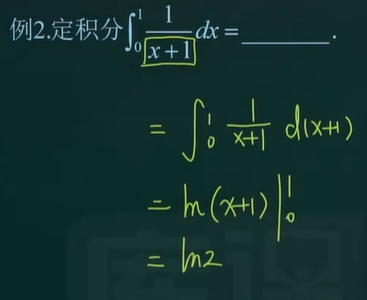 例2.定积分∫₀¹ 1/(x+1) dx = ________ .
= ∫₀¹ 1/(x+1) d(x+1)
= ln(x+1)|₀¹
= ln2